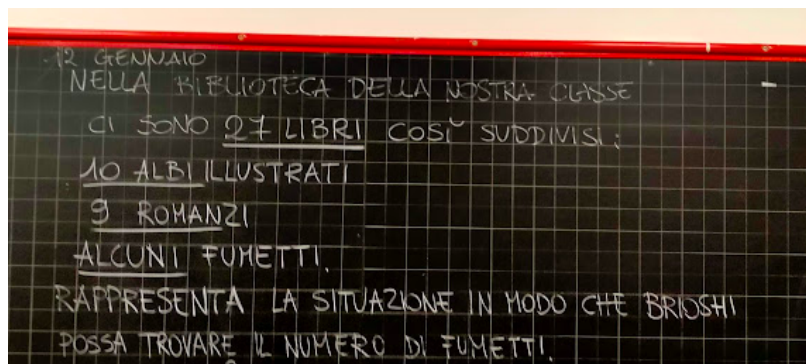 12 GENNAIO
NELLA BIBLIOTECA DELLA NOSTRA CLASSE
CI SONO 27 LIBRI COSÌ SUDDIVISI:
10 ALBI ILLUSTRATI
9 ROMANZI
ALCUNI FUMETTI.
RAPPRESENTA LA SITUAZIONE IN MODO CHE BRIOSHI
POSSA TROVARE IL NUMERO DI FUMETTI.